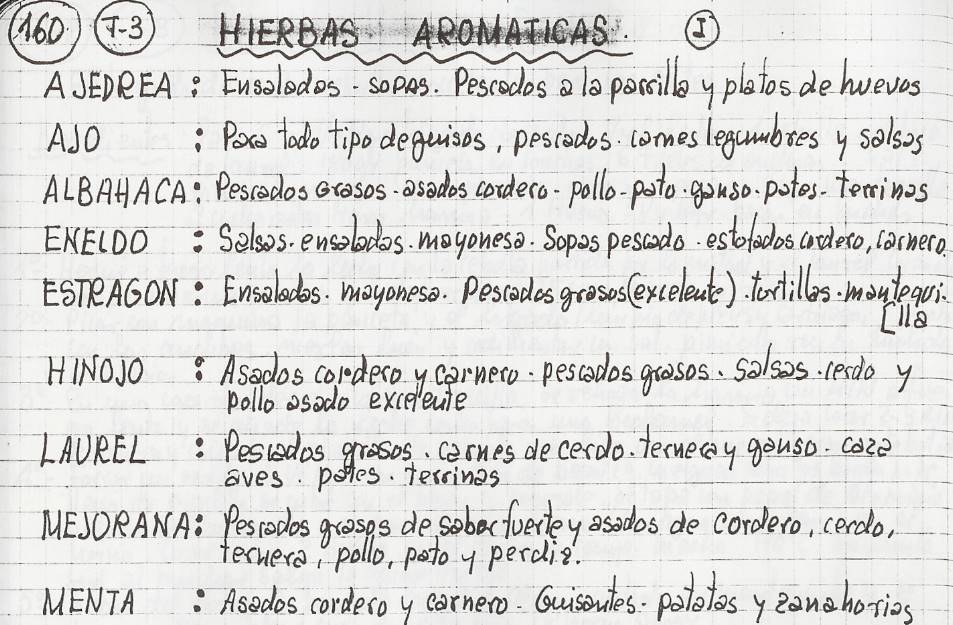 160 T-3 HIERBAS AROMATICAS. I
AJEDREA : Ensaladas - sopas. Pescados a la parrilla y platos de huevos
AJO : Para todo tipo de guisos, pescados. carnes legumbres y salsas
ALBAHACA: Pescados Grasos - asados cordero - pollo - pato. ganso. pates. terrinas
ENELDO : Salsas. ensaladas. mayonesa. Sopas pescado. estofados cordero, carnero.
ESTRAGON : Ensaladas. mayonesa. Pescados grasos (excelente). tortillas. mantequi-
[lla
HINOJO : Asados cordero y carnero. pescados grasos. Salsas. cerdo y
pollo asado excelente
LAUREL : Pescados grasos. carnes de cerdo. ternera y ganso. caza
aves. pates. terrinas
MEJORANA: Pescados grasos de sabor fuerte y asados de cordero, cerdo,
ternera, pollo, pato y perdiz.
MENTA : Asados cordero y carnero - Guisantes. patatas y zanahorias